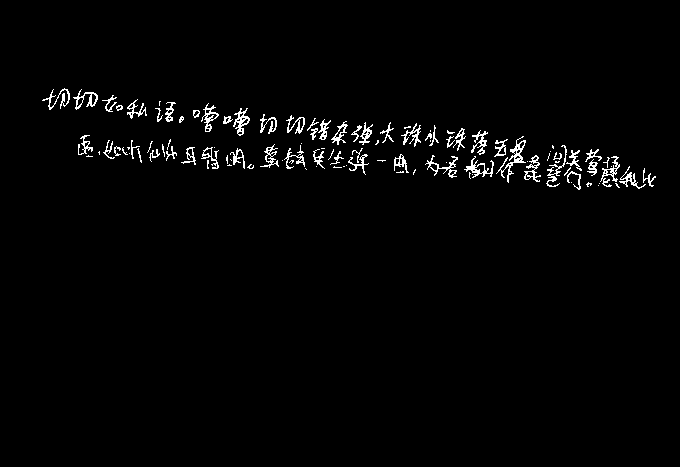 切切如私语。嘈嘈切切错杂弹,大珠小珠落玉盘 间关莺语
语,如听仙乐耳暂明。莫辞更坐弹一曲,为君翻作琵琶行。感我此